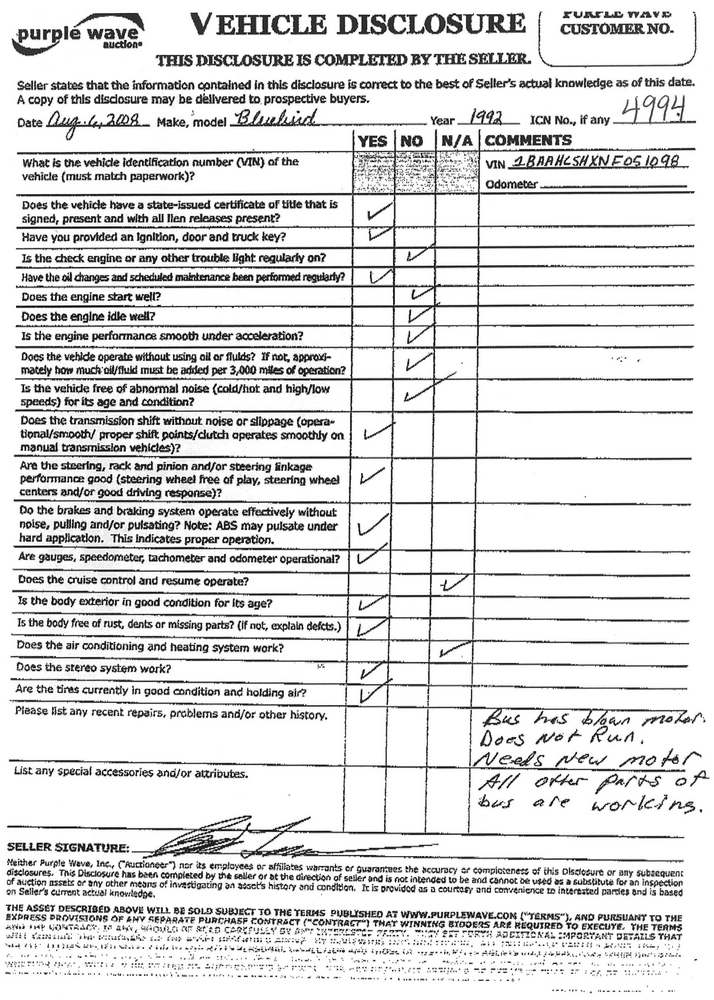 purple wave
auction®
VEHICLE DISCLOSURE
PURPLE WAVE
CUSTOMER NO.
THIS DISCLOSURE IS COMPLETED BY THE SELLER.
Seller states that the information contained in this disclosure is correct to the best of Seller's actual knowledge as of this date.
A copy of this disclosure may be delivered to prospective buyers.
Date Aug. 6, 2008 Make, model Bluebird Year 1992 ICN No., if any 4994
YES NO N/A COMMENTS
What is the vehicle identification number (VIN) of the
vehicle (must match paperwork)?
VIN 1BAAHCSHXNF051098
Odometer
Does the vehicle have a state-issued certificate of title that is
signed, present and with all lien releases present?
Have you provided an ignition, door and truck key?
Is the check engine or any other trouble light regularly on?
Have the oil changes and scheduled maintenance been performed regularly?
Does the engine start well?
Does the engine idle well?
Is the engine performance smooth under acceleration?
Does the vehicle operate without using oil or fluids? If not, approxi-
mately how much oil/fluid must be added per 3,000 miles of operation?
Is the vehicle free of abnormal noise (cold/hot and high/low
speeds) for its age and condition?
Does the transmission shift without noise or slippage (opera-
tional/smooth/ proper shift points/clutch operates smoothly on
manual transmission vehicles)?
Are the steering, rack and pinion and/or steering linkage
performance good (steering wheel free of play, steering wheel
centers and/or good driving response)?
Do the brakes and braking system operate effectively without
noise, pulling and/or pulsating? Note: ABS may pulsate under
hard application. This indicates proper operation.
Are gauges, speedometer, tachometer and odometer operational?
Does the cruise control and resume operate?
Is the body exterior in good condition for its age?
Is the body free of rust, dents or missing parts? (if not, explain defcts.)
Does the air conditioning and heating system work?
Does the stereo system work?
Are the tires currently in good condition and holding air?
Please list any recent repairs, problems and/or other history.
Bus has blown motor.
Does Not Run.
Needs New motor
List any special accessories and/or attributes.
All other parts of
bus are working.
SELLER SIGNATURE:
Neither Purple Wave, Inc., ("Auctioneer") nor its employees or affiliates warrants or guarantees the accuracy or completeness of this Disclosure or any subsequent
disclosures. This Disclosure has been completed by the seller or at the direction of seller and is not intended to be and cannot be used as a substitute for an inspection
of auction assets or any other means of investigating an asset's history and condition. It is provided as a courtesy and convenience to interested parties and is based
on Seller's current actual knowledge.
THE ASSET DESCRIBED ABOVE WILL BE SOLD SUBJECT TO THE TERMS PUBLISHED AT WWW.PURPLEWAVE.COM ("TERMS"), AND PURSUANT TO THE
EXPRESS PROVISIONS OF ANY SEPARATE PURCHASE CONTRACT ("CONTRACT") THAT WINNING BIDDERS ARE REQUIRED TO EXECUTE. THE TERMS
AND THE CONTRACT, IF ANY, SHOULD BE READ CAREFULLY BY ANY INTERESTED PARTY. THEY SET FORTH ADDITIONAL IMPORTANT DETAILS THAT